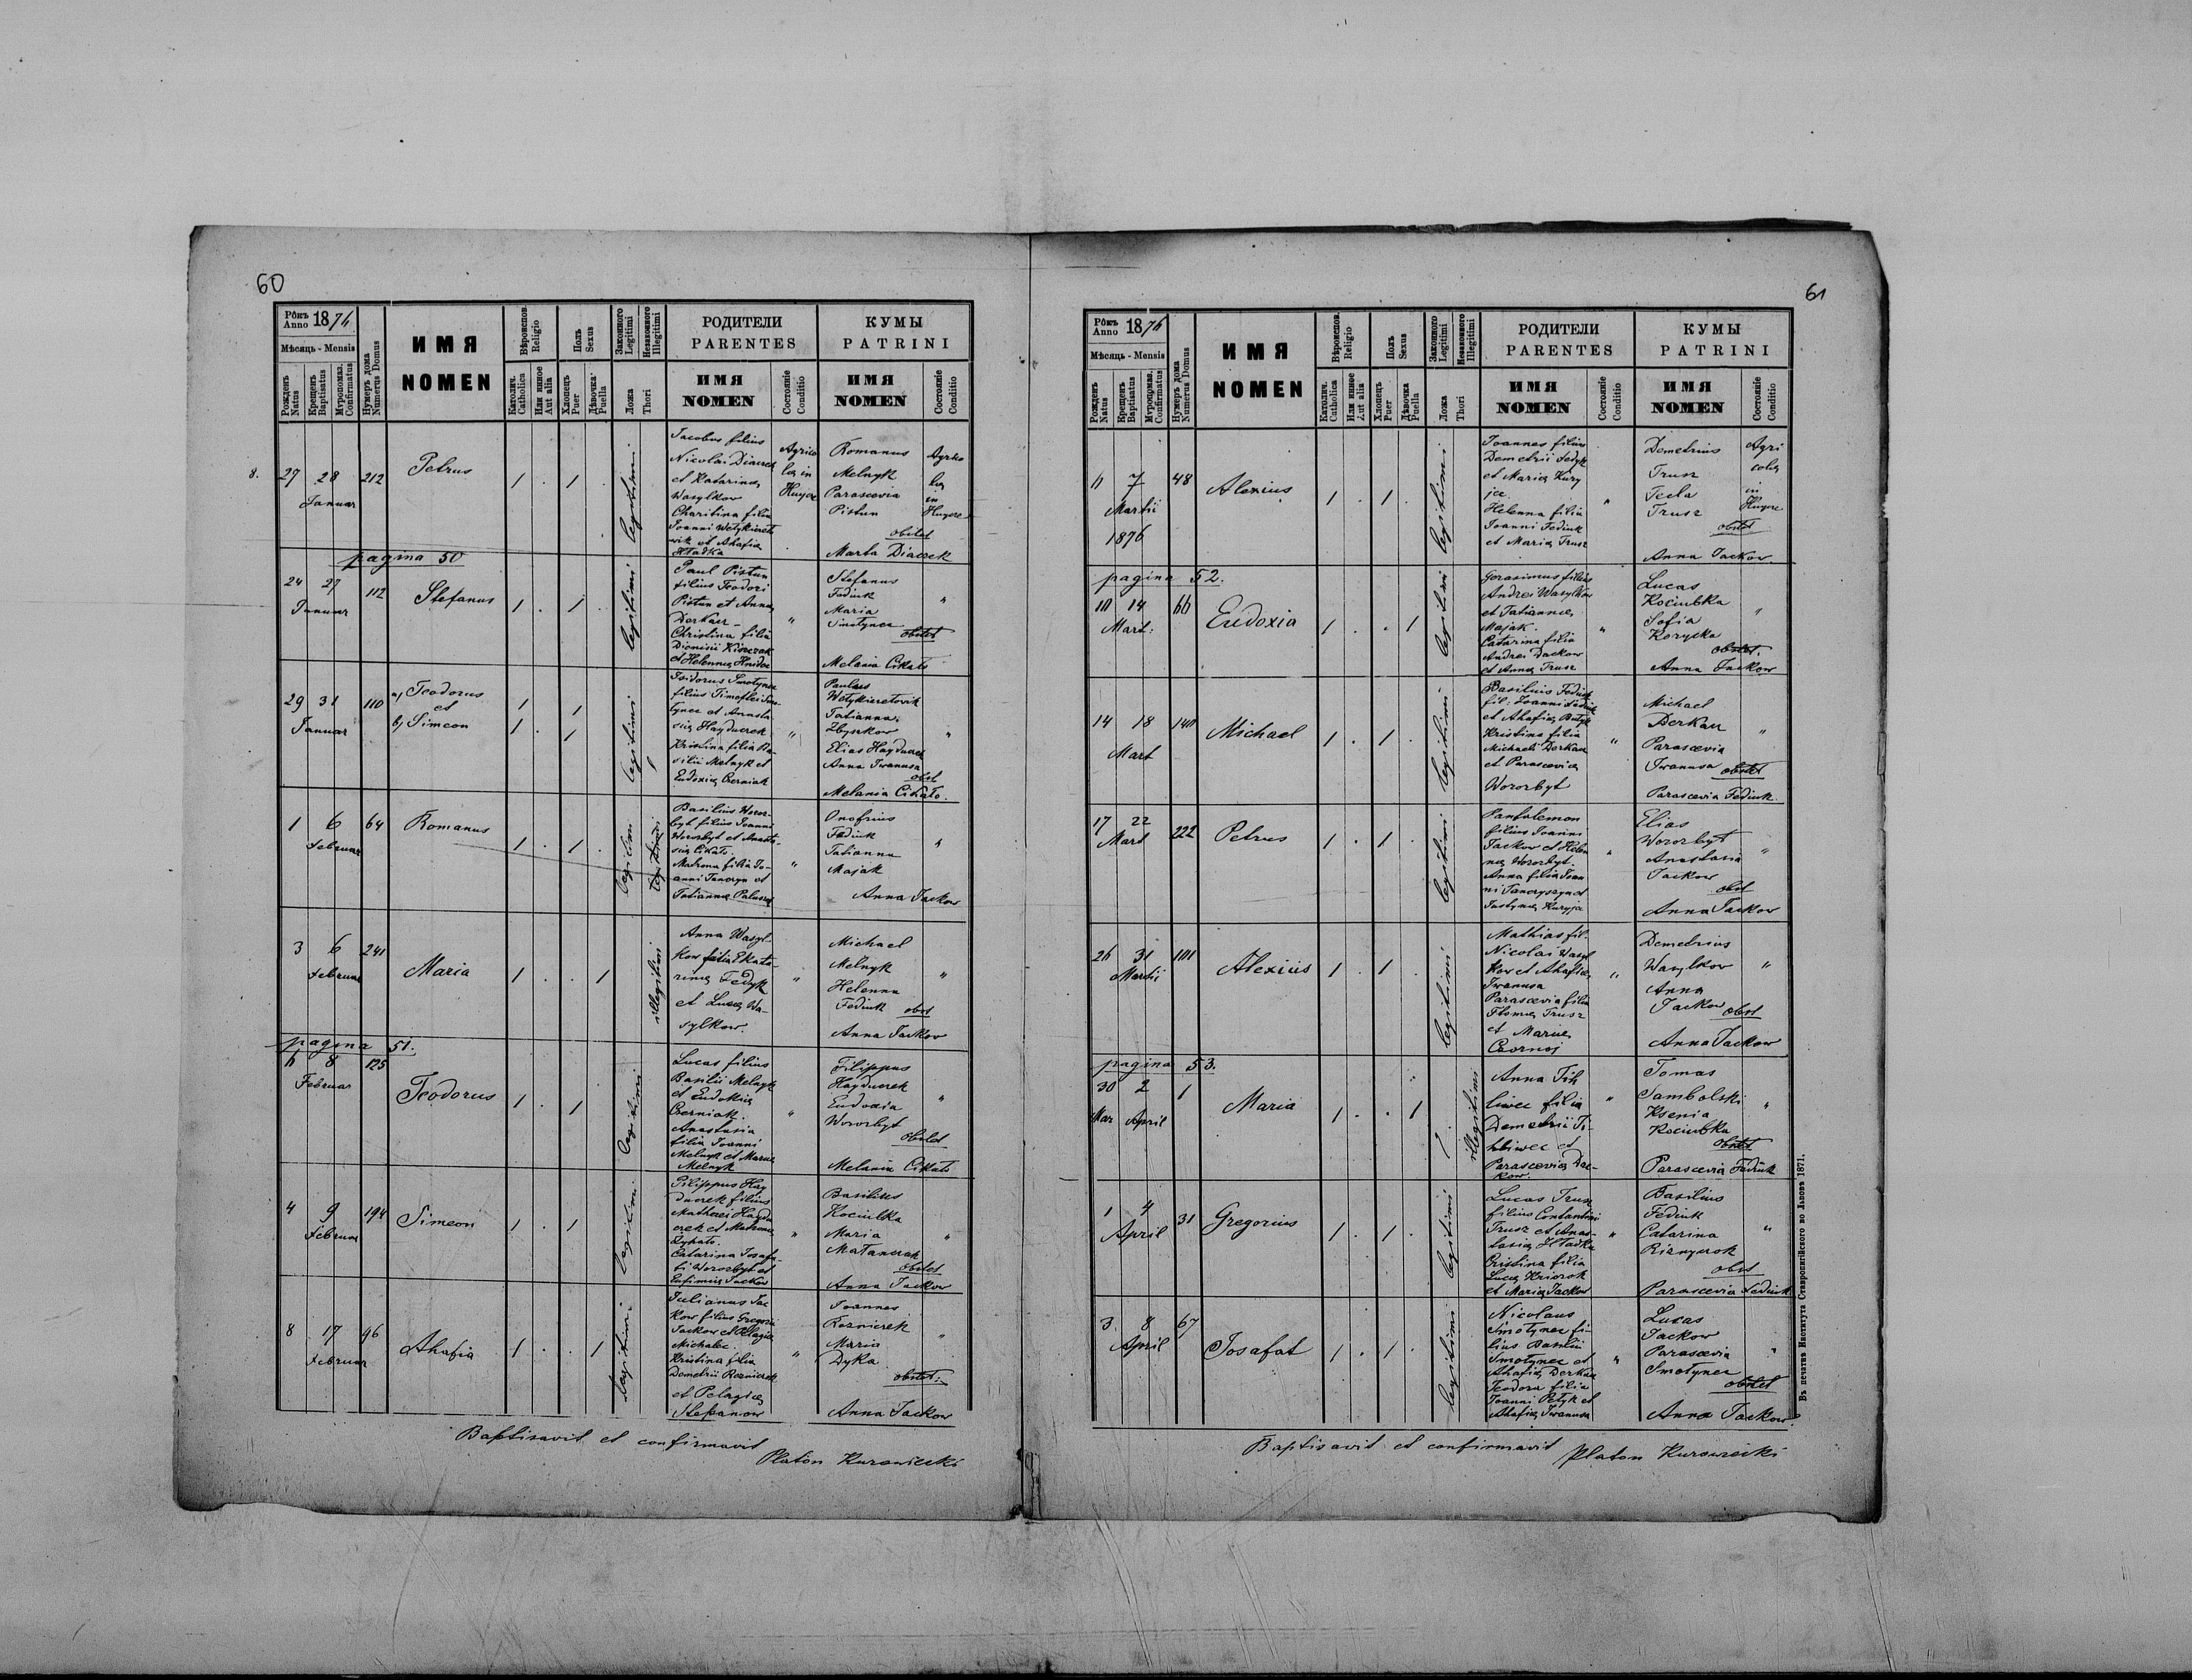 60
Рôкъ Anno 1876
Мѣсяць - Mensis
Рожденъ Natus
Крещенъ Baptisatus
Муропомаз. Confirmatus
Нумеръ дома Numerus Domus
ИМЯ
NOMEN
Вѣроиспов. Religio
Католич. Catholica
Или инное Aut alia
Полъ Sexus
Хлопець Puer
Дѣвочка Puella
Законного Legitimi
Незаконного Illegitimi
Ложа Thori
РОДИТЕЛИ
PARENTES
ИМЯ
NOMEN
Состояніе Conditio
КУМЫ
PATRINI
ИМЯ
NOMEN
Состояніе Conditio
8. 27 28 212
Januar
Petrus
1 . 1 .
legitimi
Jacobus filius
Nicolai Diaczek
et Katarina
Wasylkow
Charitina filia
Joanni
wik et Ahafia
Hładka
Agrico
la in
Hujcze
Romanus
Melnyk
Parascevia
Pistun
obstet
Marta Diaczek
Agrico
la
in
Hujcze
pagina 50
24 27 112
Januar
Stefanus
1 . 1 .
legitimi
Paul Pistun
filius Teodori
Pistun et Anna
Derkacz -
Christina filia
Dionisii Kiszczak
et Helenna Hnidec
"
Stefanus
Fediuk
Maria
Smotynec
obstet
Melania Cikało
"
29 31 110
Januar
a) Teodorus
et
b) Simeon
1 1
1 . 1
legitimi
Isidorus Smotynec
filius Timoftei Smo
tynec et Anasta
sia Hayduczek
Kristina filia Ba-
silii Melnyk et
Eudoxia Czerniak
"
Paulus
Tatianna
Zbyszkow
Elias Hayduczek
Anna Iwanusa
obst
Melania Cikało.
"
1 6 64
Februar
Romanus
1 . 1 .
legitimi
legitimi
Basilius Woroz-
byt filius Joanni
Worozbyt et Anasta-
sia Cikało.
Matrona filia Jo-
anni Janczyn et
Tatianna
"
Onofrius
Fediuk
Tatianna
Majak
Anna Jackow
"
3 6 241
Februar
Maria
1 . . 1
illegitimi
Anna Wasyl-
kow filia Ekata-
rina Fedyk
et Luca Wa-
sylkow.
"
Michael
Melnyk
Helenna
Fediuk obst
Anna Jackow
"
pagina 51.
8 125
Februar
Teodorus
1 . 1
legitimi
Lucas filius
Basilii Melnyk
et Eudokia
Czerniak.
Anastasia
filia Joanni
Melnyk et Maria
Melnyk
"
Filippus
Hayduczek
Eudoxia
Worozbyt
obstet
Melania Cikało
"
4 9 194
Februar
Simeon
1 . 1
legitimi
Filippus Hay
duczek filius
Mathei Haydu
czek et Matrona
Cykało.
Catarina Josafa-
ti Worozbyt et
Eufimia Jackow
"
Basilius
Kociubka
Maria
Matanczak
obstet
Anna Jackow
"
8 17 96
Februar
Ahafia
1 . . 1
legitimi
Julianus Jac
kow filius Gregorii
Jackow et Pelagia
Michalec
Kristina filia
Demetrii Rezniczek
et Pelagia
Stepanow
"
Joannes
Rezniczek
Maria
Dyka
obstet.
Anna Jackow
"
Baptisavit et confirmavit
Platon Kurowiecki
61
Рôкъ Anno 1876
Мѣсяць - Mensis
Рожденъ Natus
Крещенъ Baptisatus
Муропомаз. Confirmatus
Нумеръ дома Numerus Domus
ИМЯ
NOMEN
Вѣроиспов. Religio
Католич. Catholica
Или инное Aut alia
Полъ Sexus
Хлопець Puer
Дѣвочка Puella
Законного Legitimi
Незаконного Illegitimi
Ложа Thori
РОДИТЕЛИ
PARENTES
ИМЯ
NOMEN
Состояніе Conditio
КУМЫ
PATRINI
ИМЯ
NOMEN
Состояніе Conditio
7 48
Martii
1876
Alexius
1 . 1 .
legitimi
Joannes filius
Demetrii Fedyk
et Maria Kury
ja.
Helenna filia
Joanni Fediuk
et Maria Trusz
"
Demetrius
Trusz
Tecla
Trusz
obstet
Anna Jackow.
Agri
cola
in
Hujcze
pagina 52.
10 14 66
Mart:
Eudoxia
1 . . 1
legitimi
Gerasimus filius
Andrei Wasylkow
et Tatianna
Majak.
Catarina filia
Andrei Dackow
et Anna Trusz
"
Lucas
Kociubka
Sofia
Korycka
obstet.
Anna Jackow
"
14 18 140
Mart
Michael
1 . 1 .
legitimi
Basilius Fediuk
fil: Joanni Fediuk
et Ahafia Petyk
Kristina filia
Michaeli Derkacz
et Parascevia
Worozbyt
"
Michael
Derkacz
Parascevia
Iwanusa obstet
Parascevia Fediuk
"
17 22 222
Mart
Petrus
1 . 1 .
legitimi
Pantalemon
filius Joanni
Jackow et Helen
na Worozbyt.
Anna filia Joan
ni Janczyszyn et
Justyna Kuryja
"
Elias
Worozbyt
Anastasia
Jackow
obst
Anna Jackow
"
26 31 101
Martii
Alexius
1 . 1 .
legitimi
Mathias fil.
Nicolai Wasyl
kow et Ahafia
Iwanusa
Parascevia filia
Thoma Trusz
et Maria
Czornoj
"
Demetrius
Wasylkow
Anna
Jackow obst
Anna Jackow
"
pagina 53.
30 2 1
Mar April
Maria
1 . . 1
illegitimi
Anna Tih
liwec filia
Demetrii Ti-
hliwec et
Parascevia Dac-
kow.
"
Tomas
Sambolski
Ksenia
Kociubka
obstet
Parascevia Fediuk
"
1 4 31
April
Gregorius
1 . 1 .
legitimi
Lucas Trusz
filius Constantini
Trusz et Anas-
tasia Hładka
Cristina filia
Luca
et Maria Jackow
"
Basilius
Fediuk
Catarina
Riznyczok
obst
Parascevia Fediuk
"
3. 8 67
April
Josafat
1 . 1 .
legitimi
Nicolaus
Smotynec fi-
lius Basilii
Smotynec et
Ahafia Derkacz
Teodora filia
Joanni Petyk et
Ahafia Iwanusa
"
Lucas
Jackow
Parascevia
Smotynec
obstet
Anna Jackow.
"
Baptisavit et confirmavit Platon Kurowiecki
Въ печатнѣ Института Ставропигійского во Львовѣ 1871.